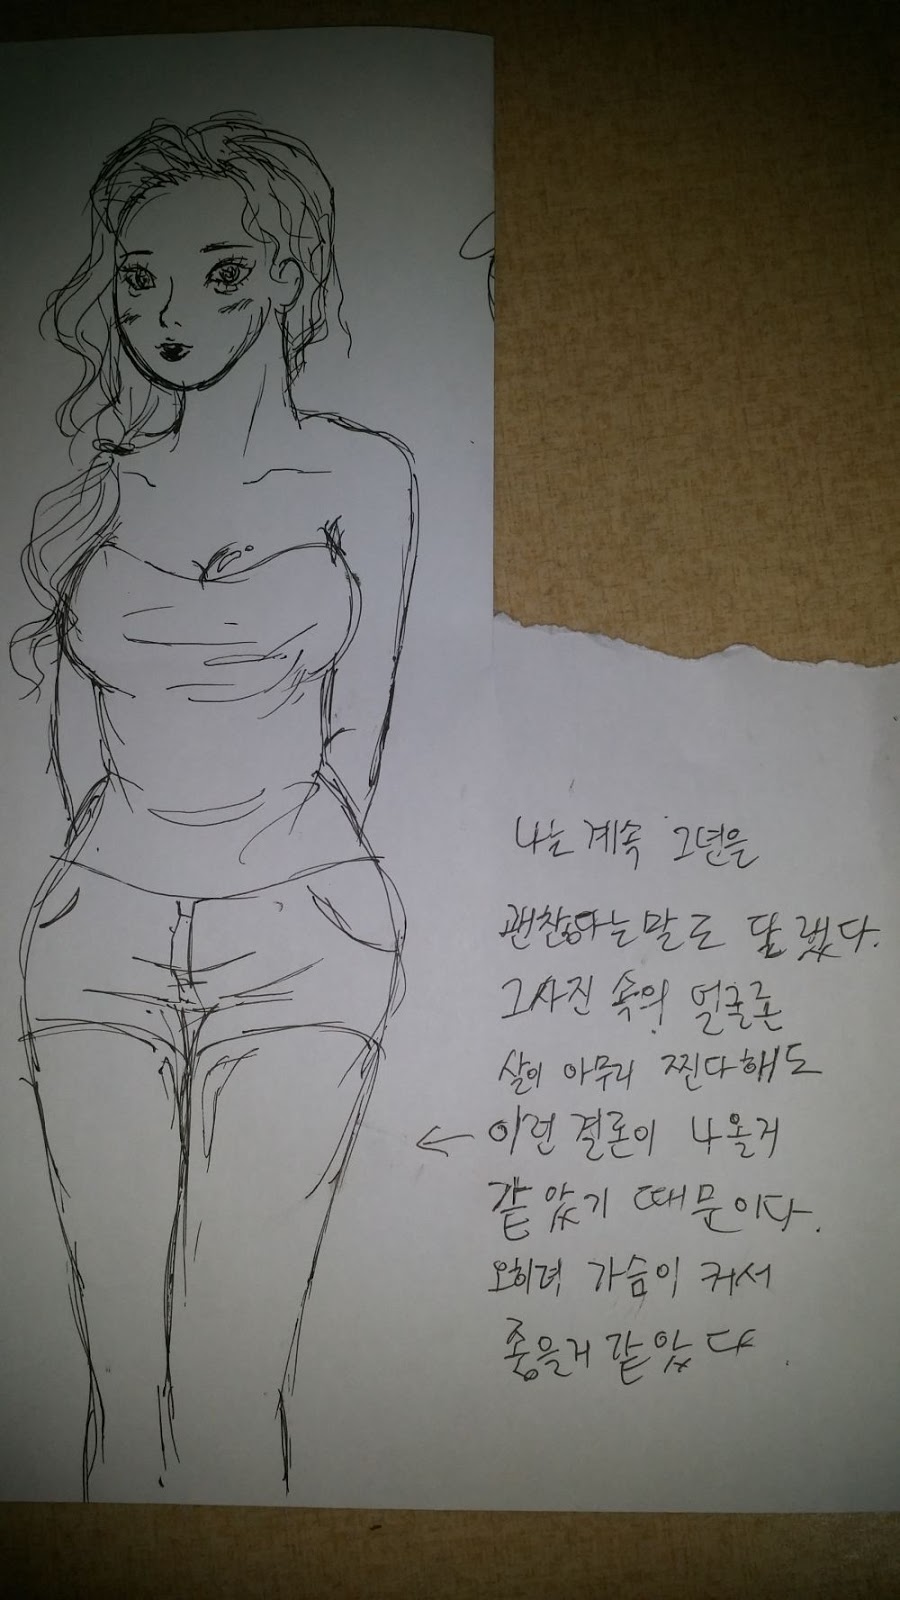 나는 계속 그년을
괜찮다는말로 달랬다.
그사진 속의 얼굴론
살이 아무리 찐다해도
← 이런 결론이 나올거
같았기 때문이다.
오히려 가슴이 커서
좋을거 같았다.